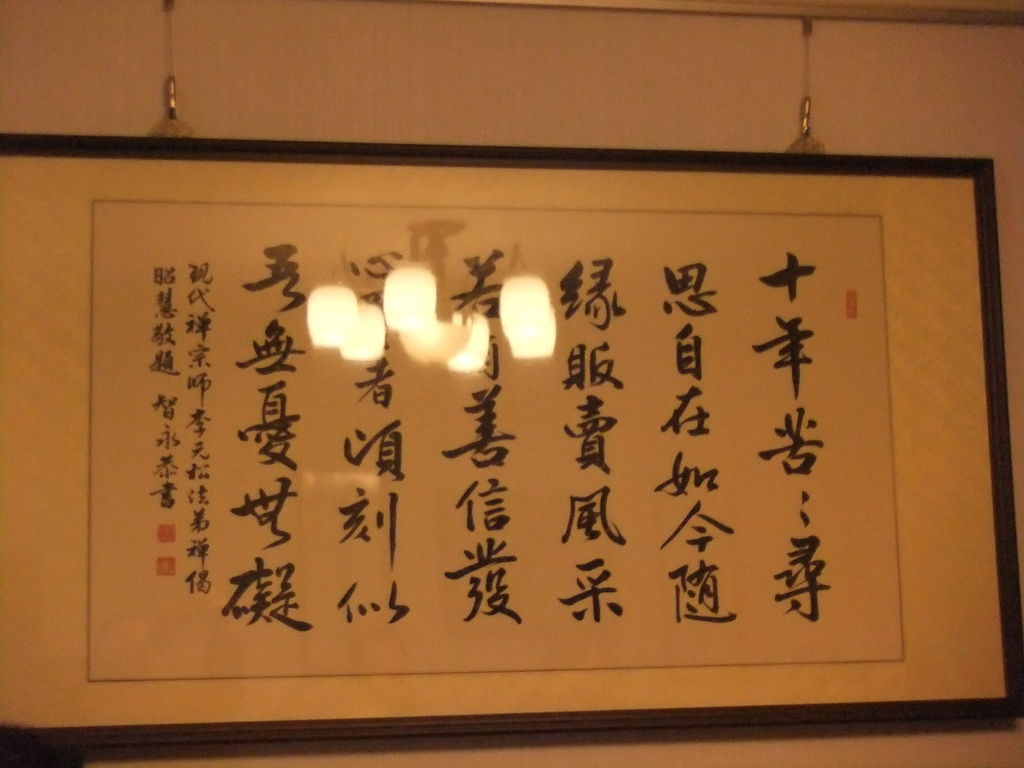 十年苦〻尋
思自在如今随
緣販賣風采
若有善信發
心者頃刻似
吾無憂無礙
現代禅宗師李元松法弟禅偈
昭慧敬題 智永恭書